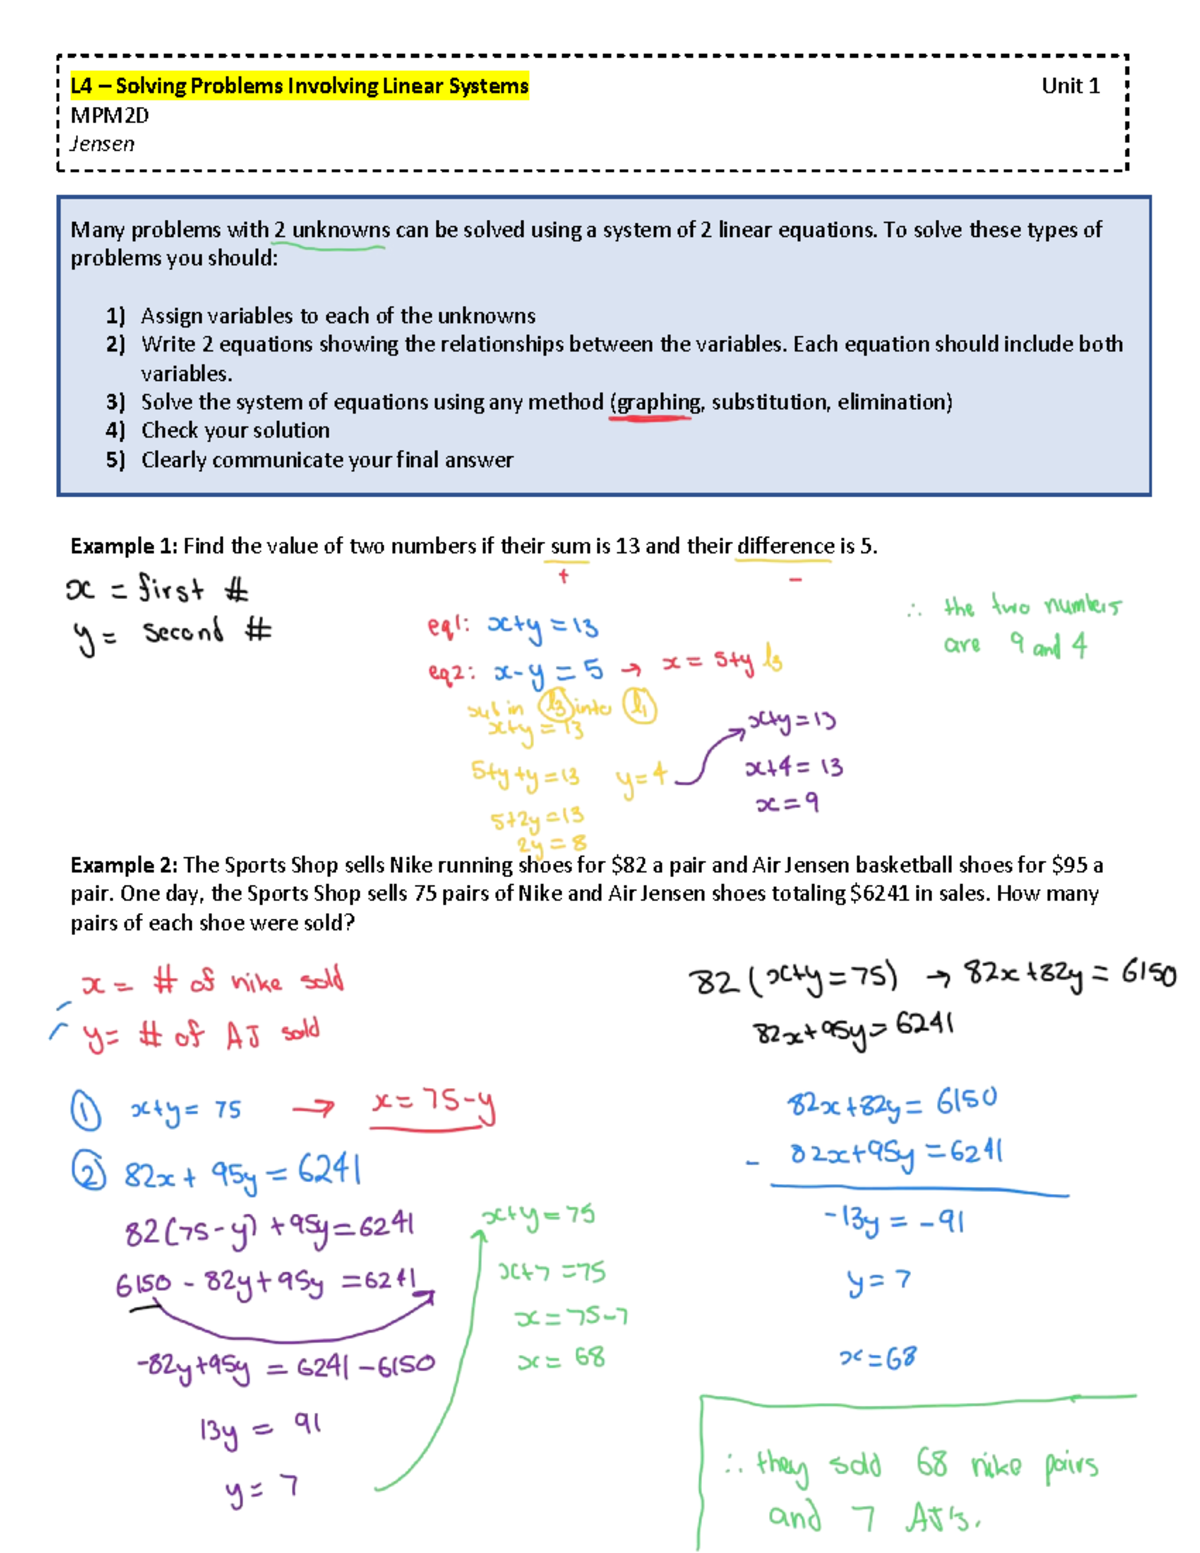 L4 – Solving Problems Involving Linear Systems Unit 1
MPM2D
Jensen
Many problems with 2 unknowns can be solved using a system of 2 linear equations. To solve these types of
problems you should:
1) Assign variables to each of the unknowns
2) Write 2 equations showing the relationships between the variables. Each equation should include both
variables.
3) Solve the system of equations using any method (graphing, substitution, elimination)
4) Check your solution
5) Clearly communicate your final answer
Example 1: Find the value of two numbers if their sum is 13 and their difference is 5.
+ −
x = first #
y = second #
eq1: x+y = 13
eq2: x-y = 5 → x = 5+y l3
sub in l3 into l1
x+y = 13
5+y+y = 13 y=4
5+2y = 13
2y = 8
x+y = 13
x+4 = 13
x = 9
∴ the two numbers
are 9 and 4
Example 2: The Sports Shop sells Nike running shoes for $82 a pair and Air Jensen basketball shoes for $95 a
pair. One day, the Sports Shop sells 75 pairs of Nike and Air Jensen shoes totaling $6241 in sales. How many
pairs of each shoe were sold?
x = # of nike sold
y = # of AJ sold
① x+y = 75 → x = 75-y
② 82x + 95y = 6241
82(75-y) + 95y = 6241
6150 - 82y + 95y = 6241
-82y+95y = 6241-6150
13y = 91
y = 7
x+y = 75
x+7 = 75
x = 75-7
x = 68
82(x+y=75) → 82x+82y = 6150
82x+95y = 6241
82x+82y = 6150
- 82x+95y = 6241
-13y = -91
y = 7
x = 68
∴ they sold 68 nike pairs
and 7 AJ's.